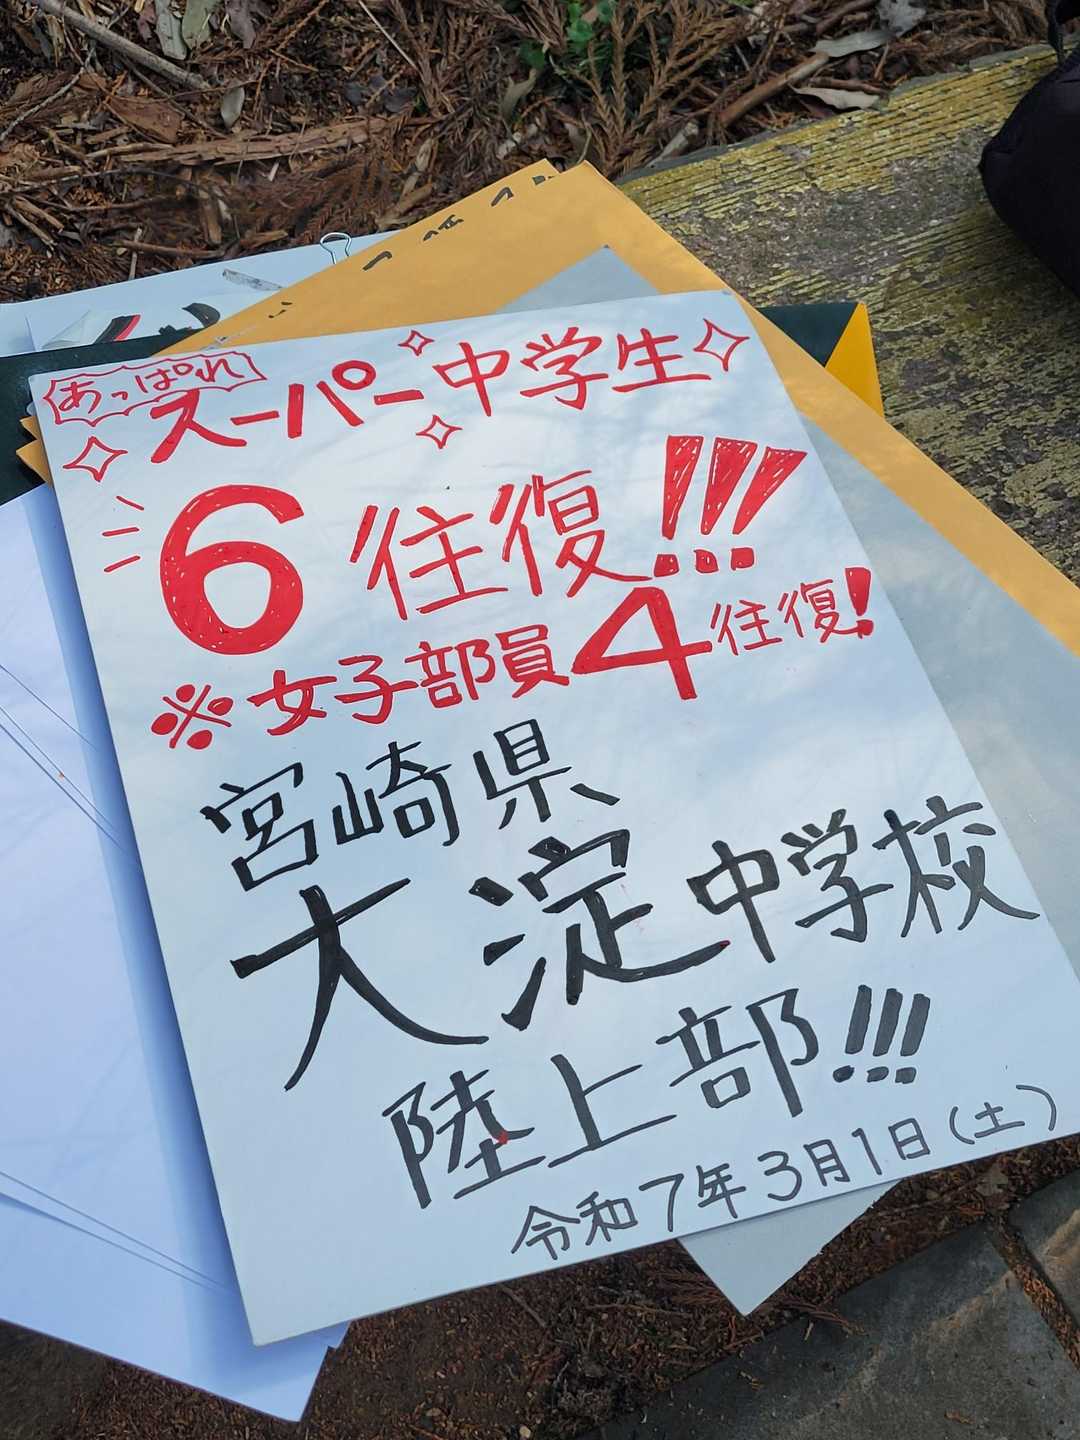 あっぱれ
スーパー中学生
6往復!!!
※女子部員4往復!
宮崎県
大淀中学校
陸上部!!!
令和7年3月1日(土)